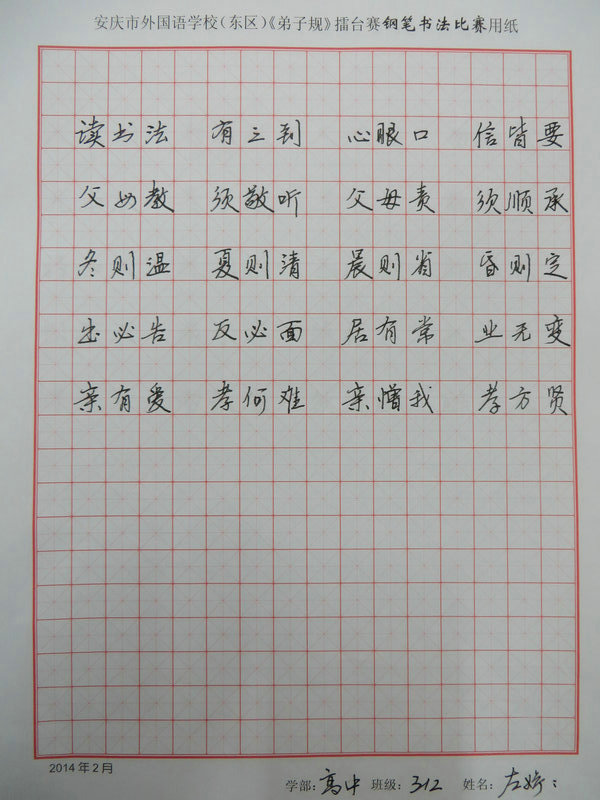 安庆市外国语学校(东区)《弟子规》擂台赛钢笔书法比赛用纸
读书法 有三到 心眼口 信皆要
父母教 须敬听 父母责 须顺承
冬则温 夏则清 晨则省 昏则定
出必告 反必面 居有常 业无变
亲有爱 孝何难 亲憎我 孝方贤
2014年2月
学部:高中 班级:312 姓名:左